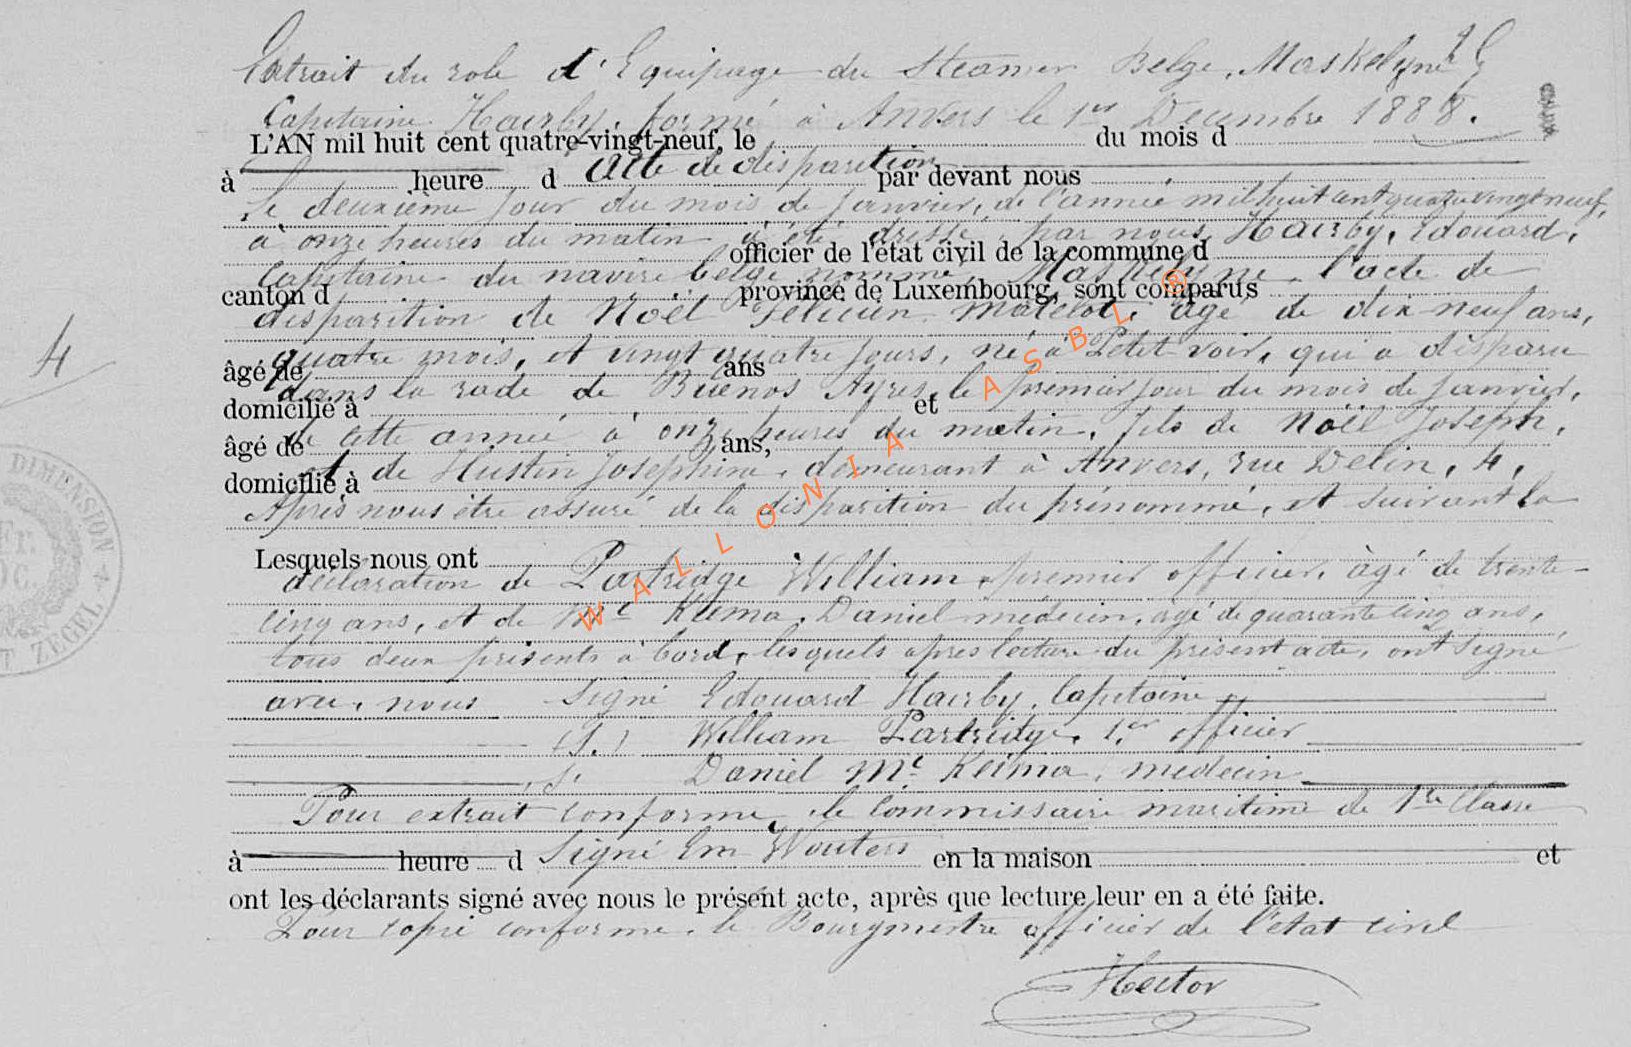 Extrait du role d'Equipage du Steamer Belge, Maskelyne
Capitaine Hairby, formé à Anvers le 1er Decembre 1888.
L'AN mil huit cent quatre-vingt-neuf, le du mois d
à heure d acte de disparition par devant nous
Le deuxième jour du mois de janvier, de l'année mil huit cent quatre vingt neuf,
à onze heures du matin a été dressé, par nous, Hairby, Edouard,
officier de l'état civil de la commune d
Capitaine du navire belge nommé, Maskelyne, l'acte de
canton d province de Luxembourg, sont comparus
disparition de Noël Félicien matelot, agé de dix-neuf ans,
quatre mois, et vingt quatre jours, né à Petit voir, qui a disparu
âgé de ans
dans la rade de Buenos Ayres, le premier jour du mois de janvier,
domicilié à et
de cette année à onze heures du matin, fils de Noël Joseph,
âgé de ans,
et de Hustin Joséphine, demeurant à Anvers, rue Delin, 4,
domicilié à
Après nous être assuré de la disparition du prénommé, et suivant la
Lesquels nous ont
déclaration de Partridge William, premier officier, âgé de trente-
cinq ans, et de Mc Keima, Daniel médecin, agé de quarante cinq ans,
tous deux présents à bord, lesquels apres lecture du présent acte, ont signé
avec nous Signé Edouard Hairby, Capitaine
(S.) William Partridge, 1er officier
S. Daniel Mc Keima, medecin
Pour extrait conforme, le Commissaire maritime de 1re Classe
à heure d Signé Em Wouters en la maison et
ont les déclarants signé avec nous le présent acte, après que lecture leur en a été faite.
Pour copie conforme, le Bourgmestre officier de l'état civil
Hector
4
DIMENSION
ZEGEL
WALLONIA ASBL ®